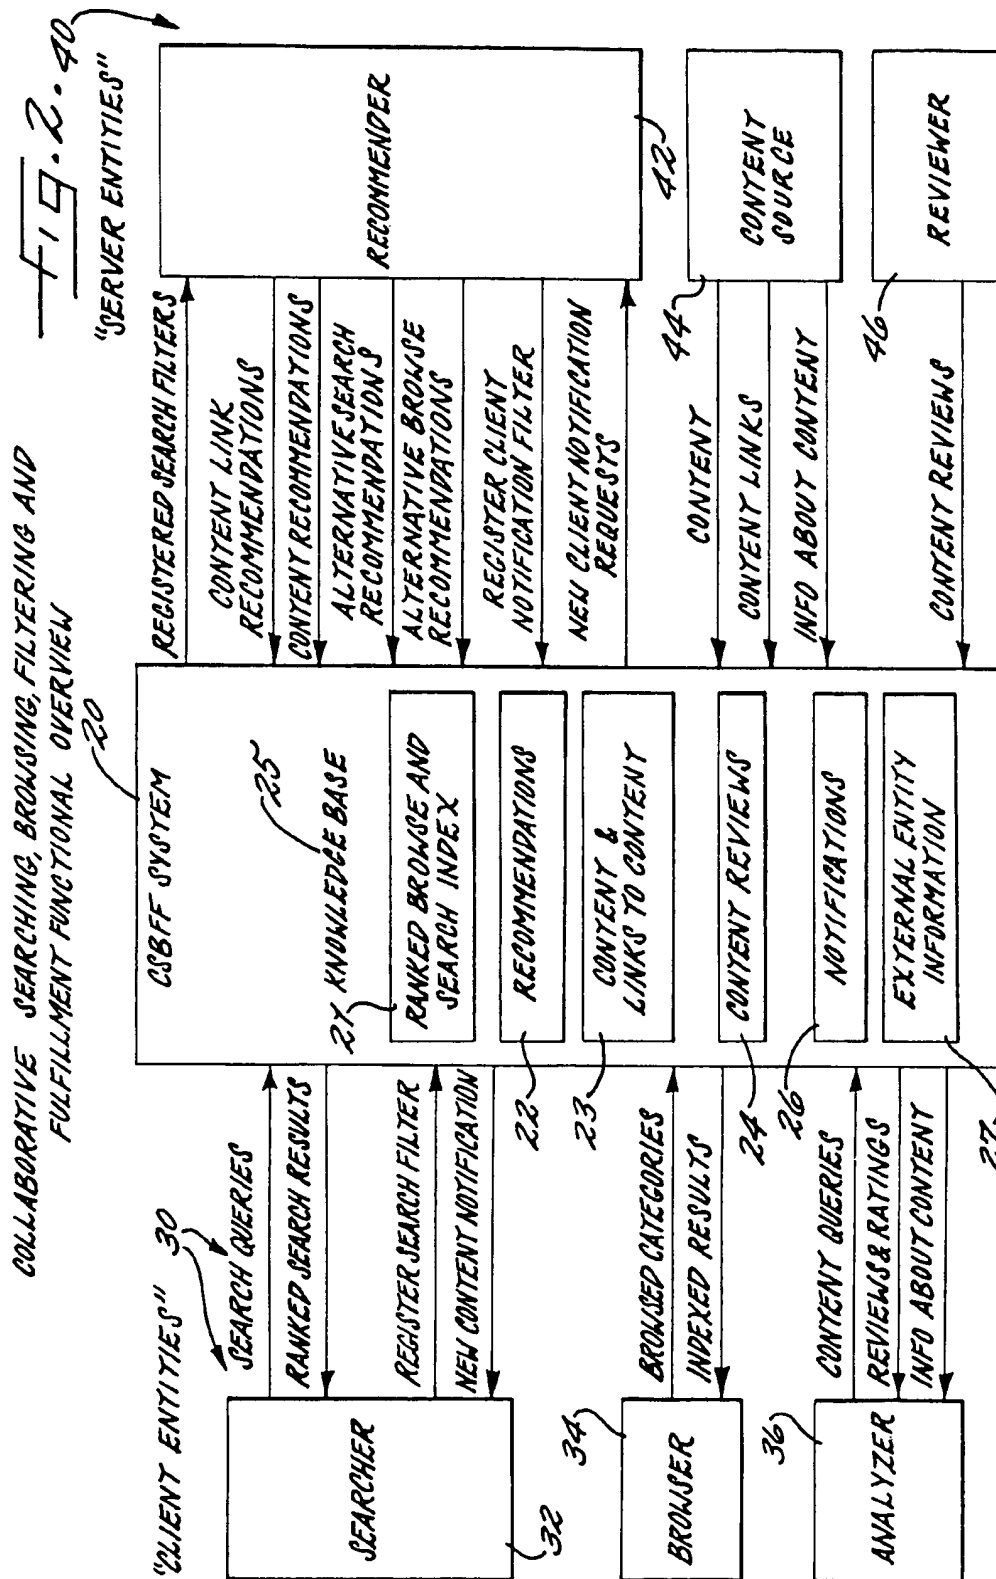 COLLABORATIVE SEARCHING, BROWSING, FILTERING AND
FULFILLMENT FUNCTIONAL OVERVIEW
FIG. 2.
"CLIENT ENTITIES"
30
"SERVER ENTITIES"
40
SEARCHER
32
SEARCH QUERIES
RANKED SEARCH RESULTS
REGISTER SEARCH FILTER
NEW CONTENT NOTIFICATION
BROWSER
34
BROWSED CATEGORIES
INDEXED RESULTS
ANALYZER
36
CONTENT QUERIES
REVIEWS & RATINGS
INFO ABOUT CONTENT
CSBFF SYSTEM
20
25
KNOWLEDGE BASE
21
RANKED BROWSE AND
SEARCH INDEX
22
RECOMMENDATIONS
23
CONTENT &
LINKS TO CONTENT
24
CONTENT REVIEWS
26
NOTIFICATIONS
27
EXTERNAL ENTITY
INFORMATION
REGISTERED SEARCH FILTERS
CONTENT LINK
RECOMMENDATIONS
CONTENT RECOMMENDATIONS
ALTERNATIVE SEARCH
RECOMMENDATIONS
ALTERNATIVE BROWSE
RECOMMENDATIONS
REGISTER CLIENT
NOTIFICATION FILTER
NEW CLIENT NOTIFICATION
REQUESTS
RECOMMENDER
42
CONTENT
CONTENT LINKS
INFO ABOUT CONTENT
44
CONTENT
SOURCE
CONTENT REVIEWS
46
REVIEWER